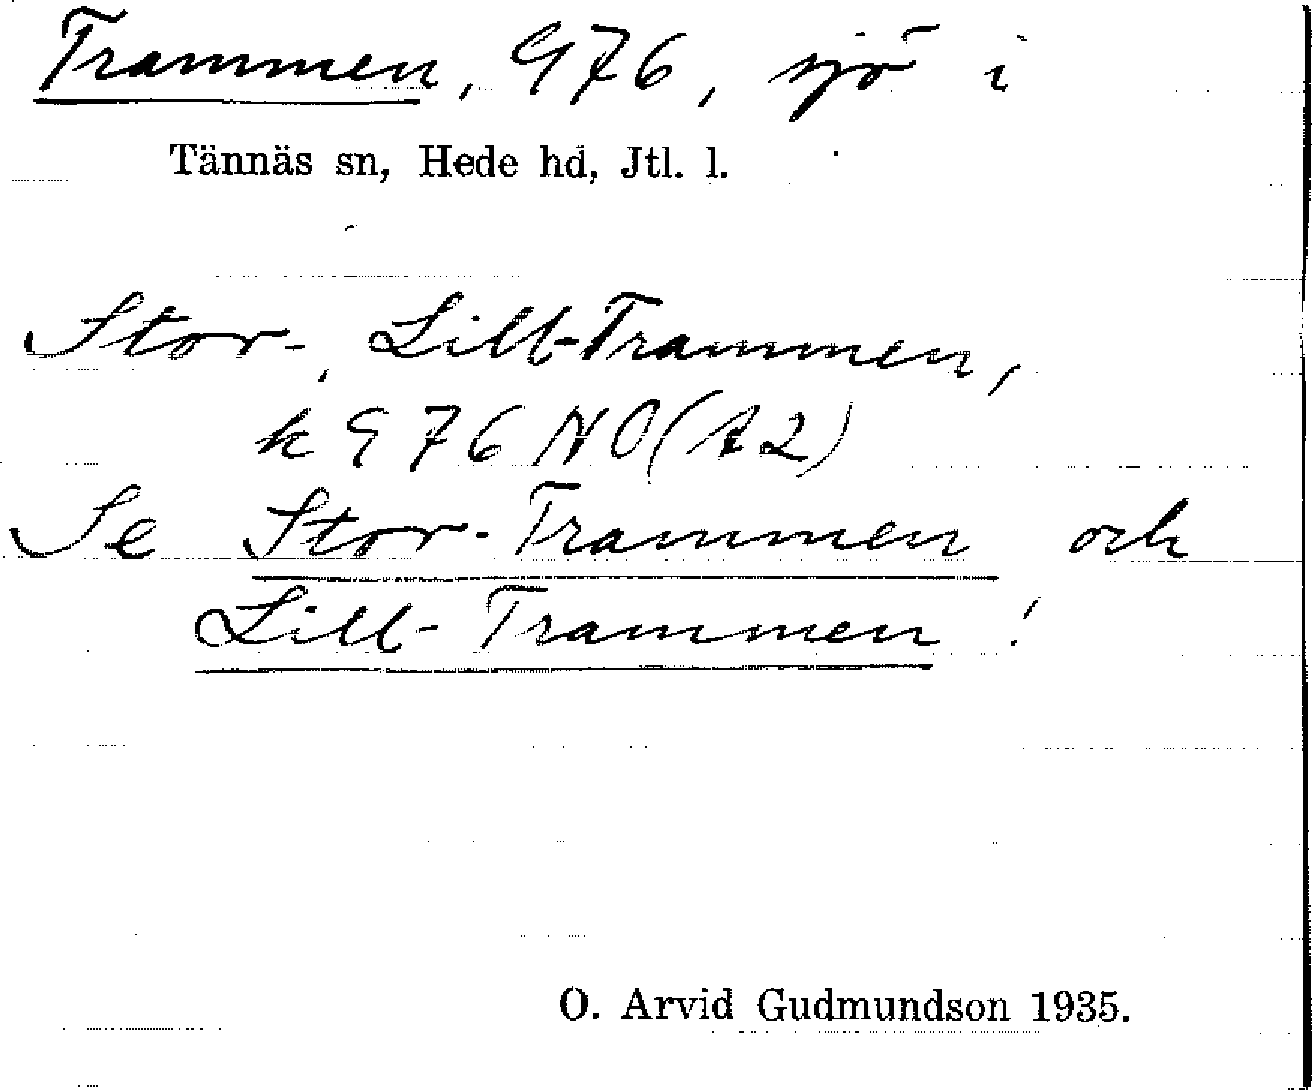 Trammen, 976, sjö i
Tännäs sn, Hede hd, Jtl. l.
Stor-, Lill-Trammen,
k 976 NO (A2)
Se Stor-Trammen och
Lill-Trammen!
O. Arvid Gudmundson 1935.